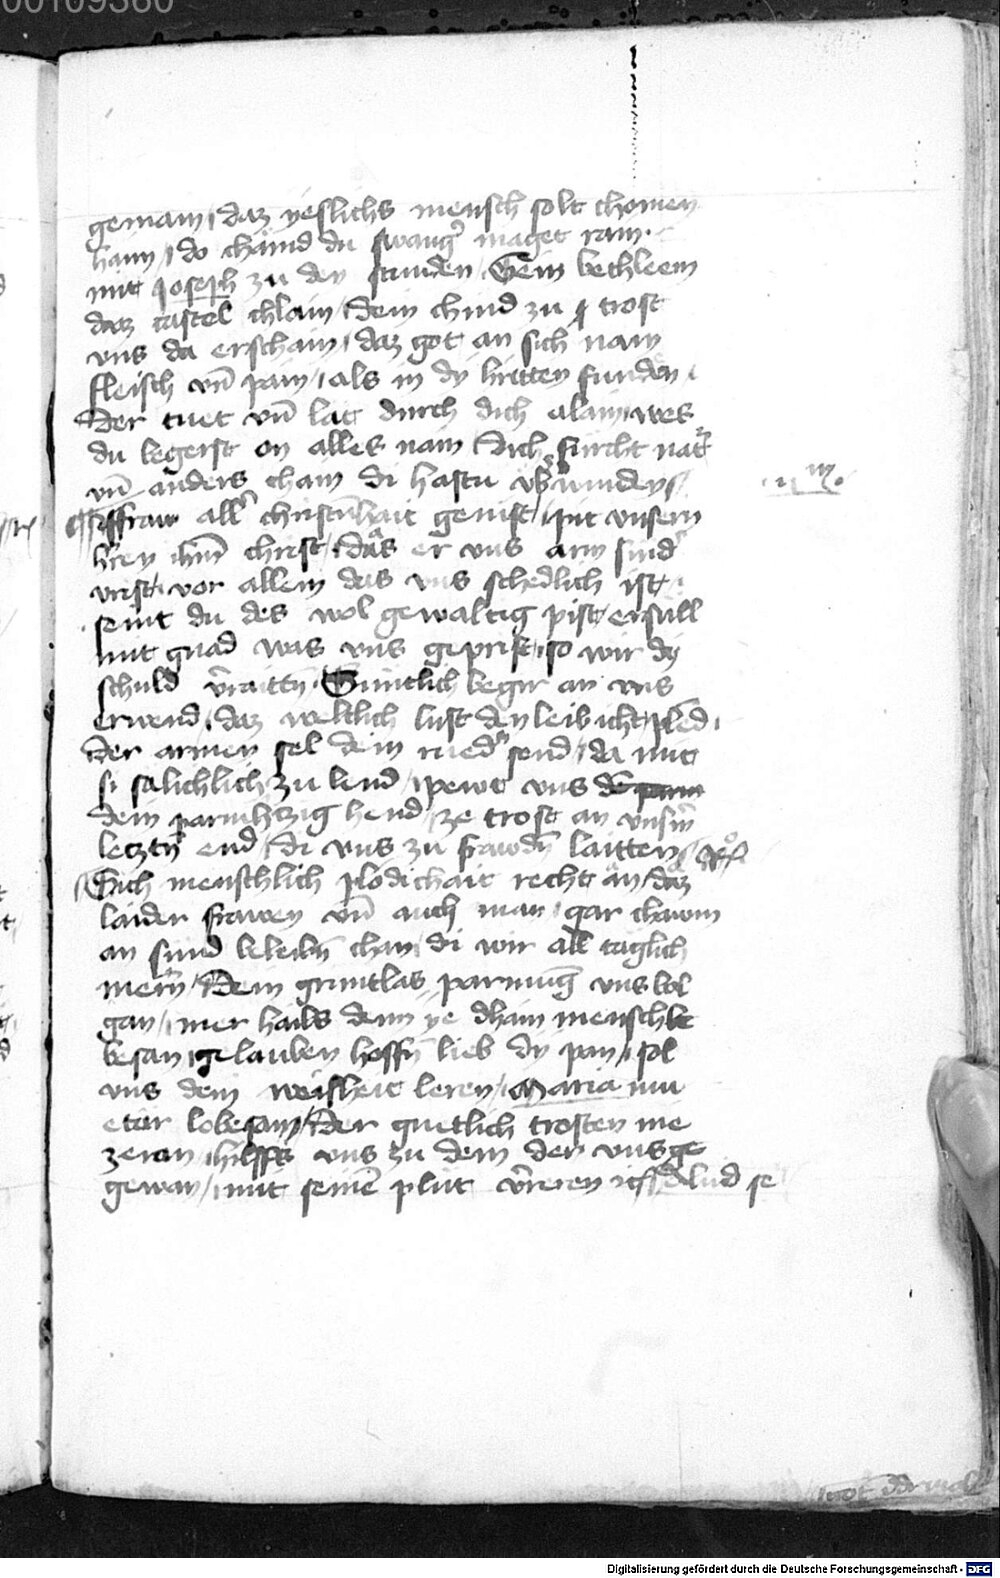 00109360
gemain / daz yeslichs mensch solt chomen
haim / do chämd du swang̉ maget rain.
mit Joseph zu den stunden Gein bethleem
daz castel chlain / Dein chind zu trost
vns da erschain / daz got an sich nam
fleisch vn̄ pain / als in dy hirtten funden.
Der tuet vn̄ lat durch dich alain / wes
du begerst on alles nain / Dich fürcht nat̉
vn̄ anders cham di hastu vb̉wunden
fraw all̉ christn̄hait genist / pit vnsern
hren ihm̄ christ / das er vns arm sind̉
vrist / vor allem das vns schedlich ist
seint du des wol gewaltig pist / erfüll
mit gnad was vns geprist / so wir dy
schuld v̉raittn̄. Sinntlich begir an vns
erwend / daz weltlich lust den leib icht plēd
der armen sel dein ried̉ send / da mit
si sälichlich zu lend / pewt vns
dein parmhtzig hend / ze trost an vnsm̉
lecztn̄ end / di vns zu frawdn̄ laitten
Sich menschlich plödichait recht an / daz
laider frawen vn̄ auch man / gar chawm
an sund beleibn̄ chan / di wir all täglich
mern̄ / Dein gruntlas parmūg vns wol
gan / mer hails denn ye dhain mensch
besan / gelauben hoffn̄ lieb dy pan / sol
vns dein weishait leren / Maria mu
eter lobesam / der guetlich trosten me
zeran / hilff vns zu dem der vns ge
gewan / mit seinē plut v̉reren
Digitalisierung gefördert durch die Deutsche Forschungsgemeinschaft - DFG